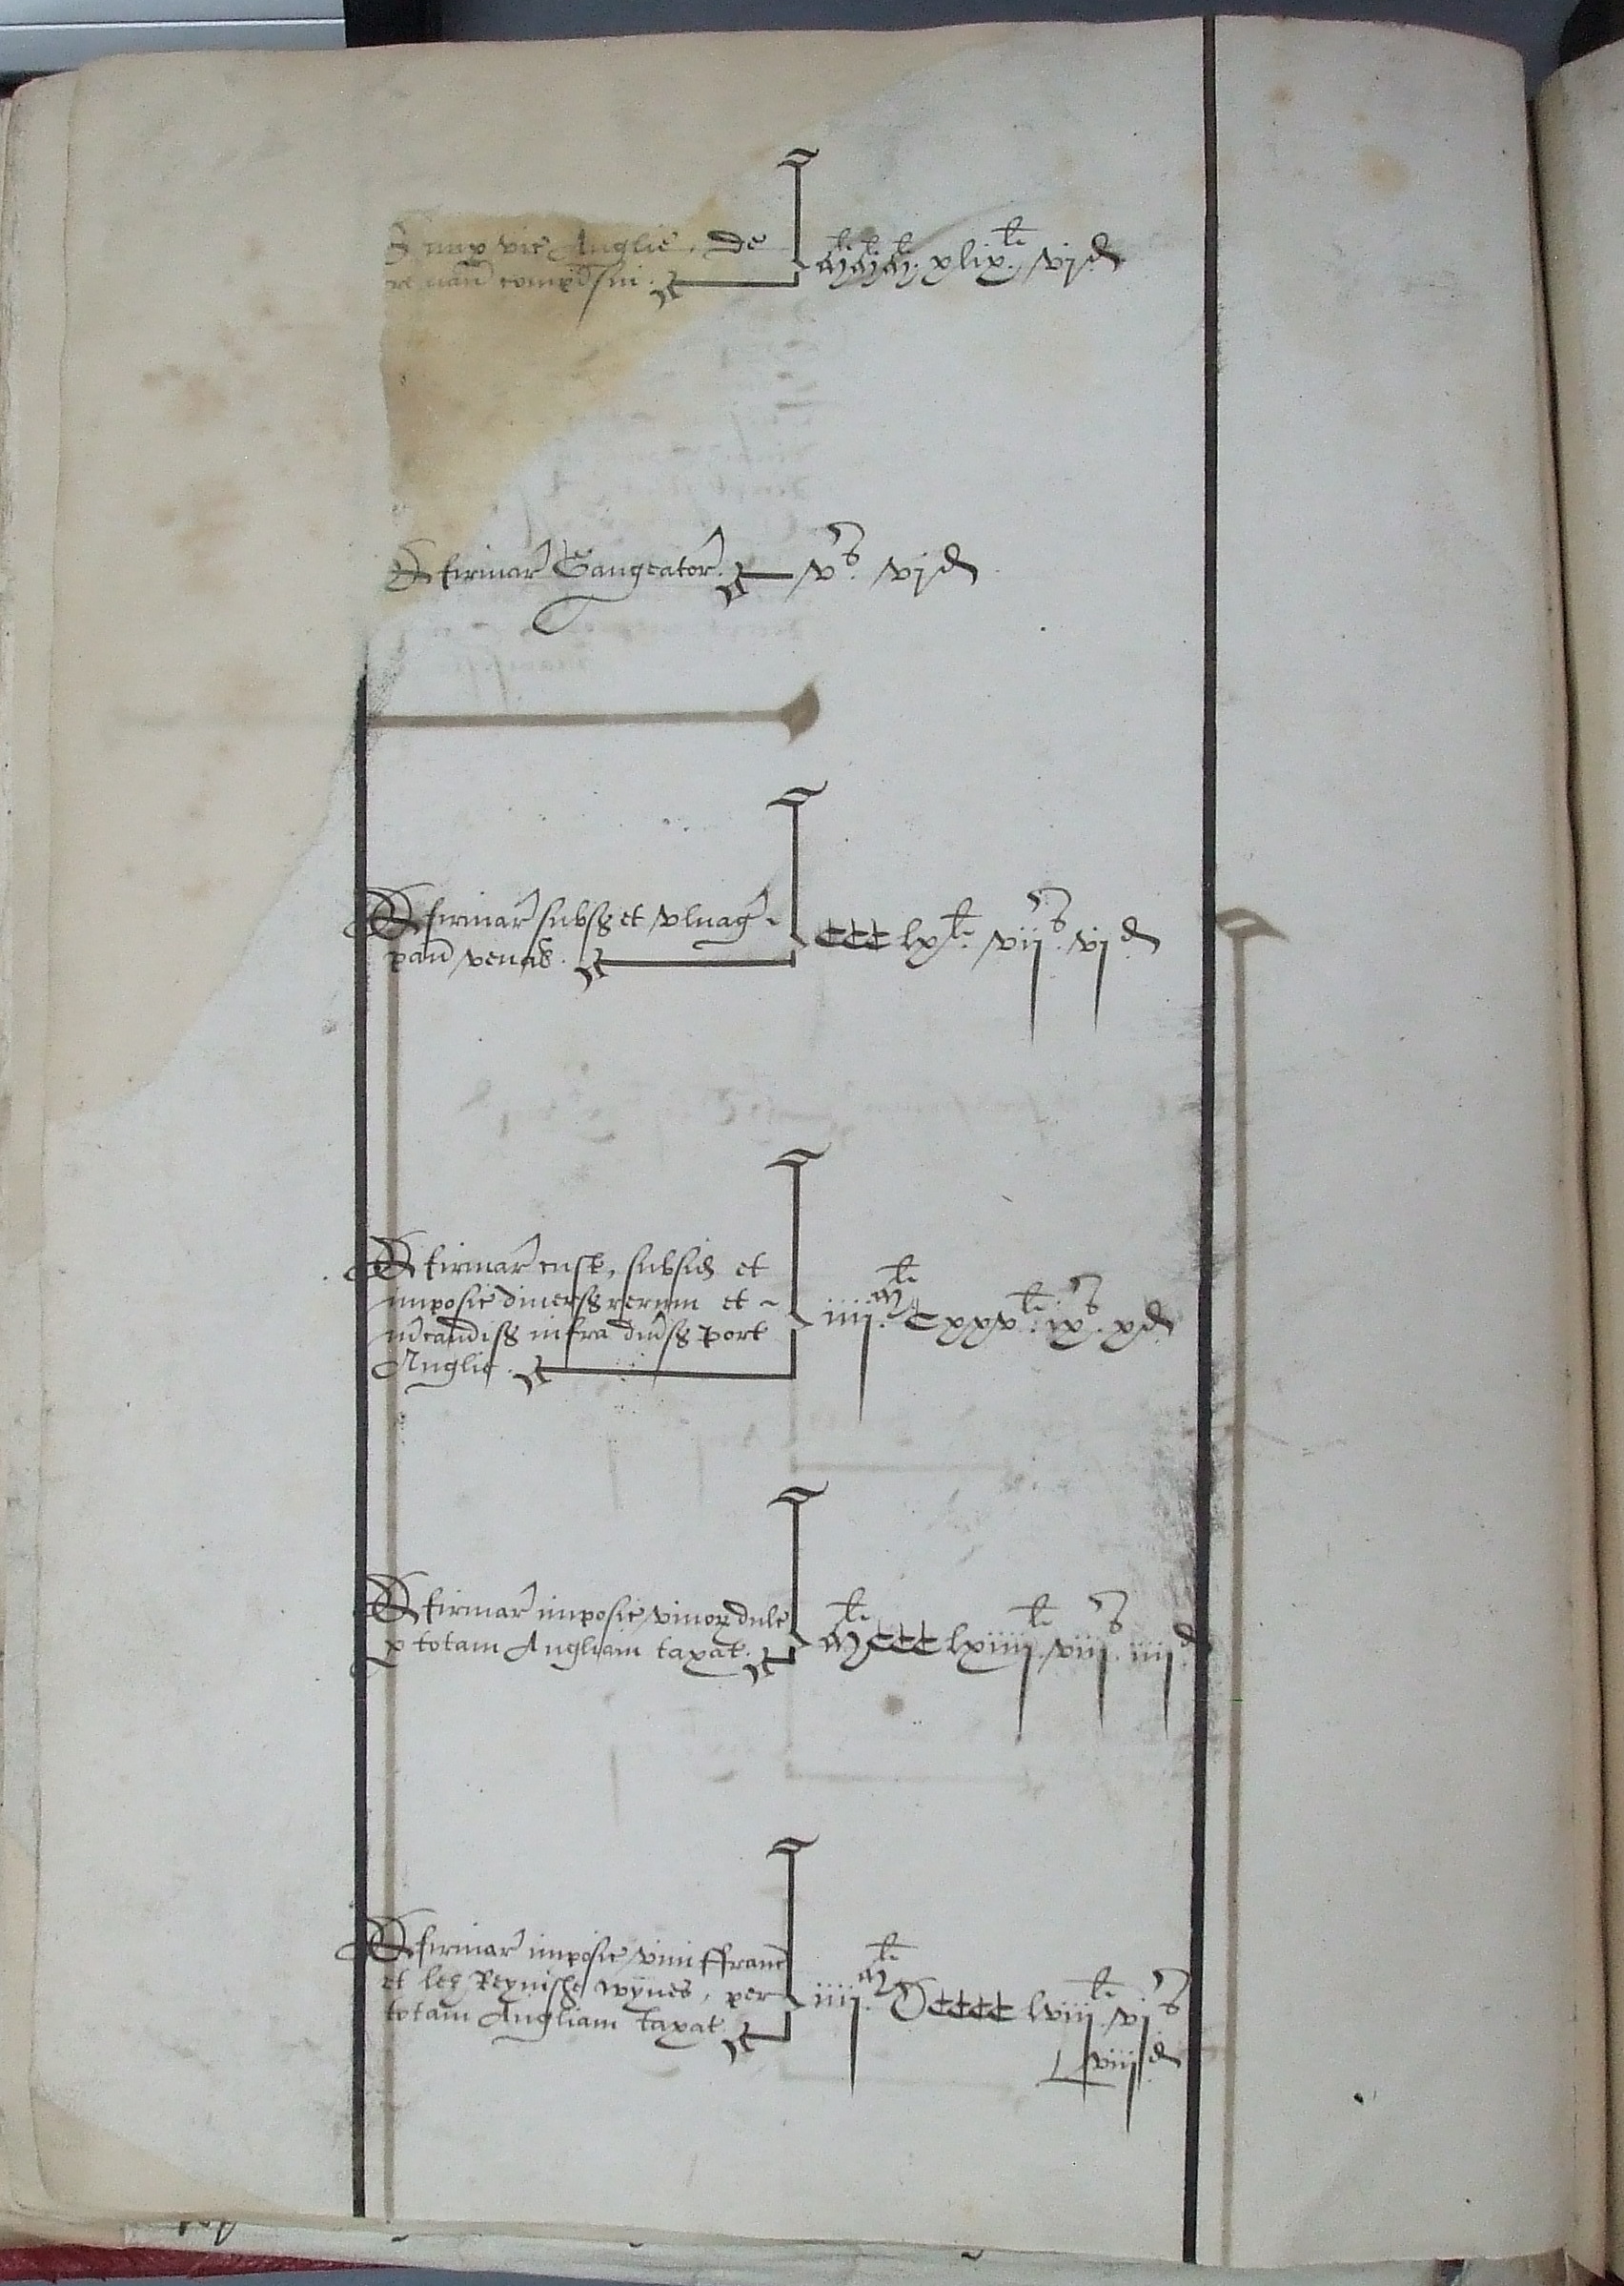 vic Anglie, de
Mli Mli Mli xlixli vjd
Firmar Gaugeator. vs vjd
Firmar subs et ulnag
pann venal.
CCC lxli vijs vjd
Firmar cust, subsid et
imposic divers rerum et
mcandis infra divs port
Anglie.
iiijMli Cxxxli ixs xd
Firmar imposic vinor dulc
p totam Angliam taxat.
Mli CCC lxiiijli viijs iiijd
Firmar imposic vini ffranc
et les Reynishe wynes, per
totam Angliam taxat
iiijMli DCCCC lviijli vjs
viijd